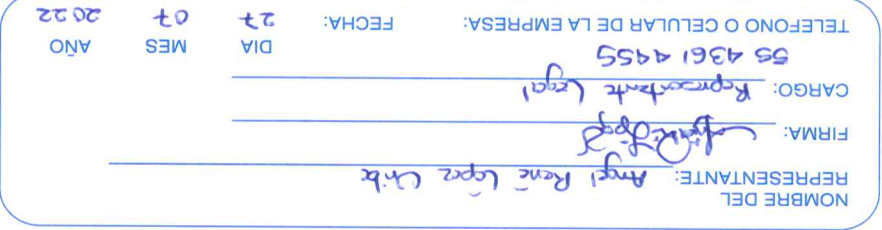 NOMBRE DEL
REPRESENTANTE: Angel René López Uribe
FIRMA:
CARGO: Representante Legal
55 4361 4455
TELEFONO O CELULAR DE LA EMPRESA: FECHA: 27 07 2022
DIA MES AÑO